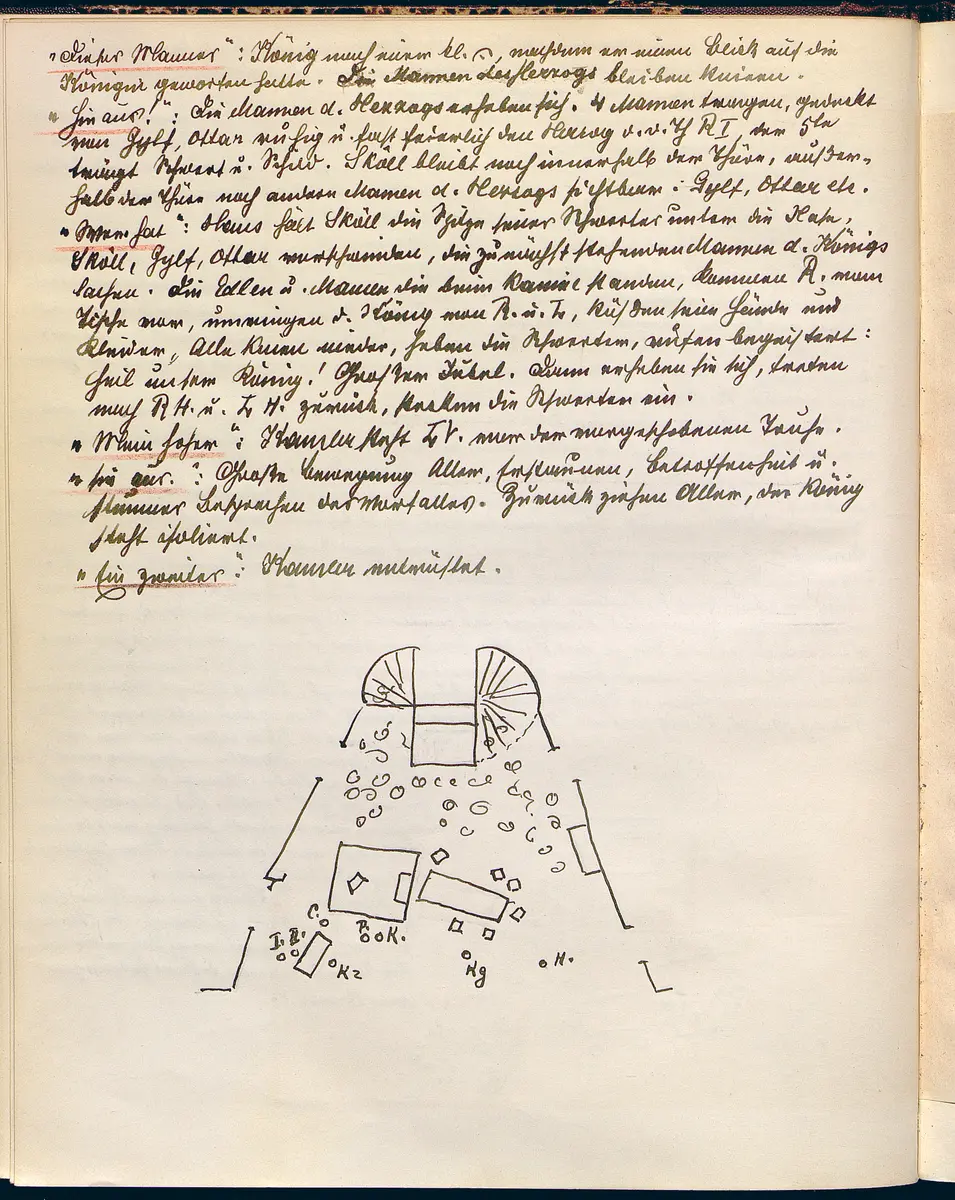 "Dieses Mannes": König nach einer kl. ⌒, nachdem er einen Blick auf die
Königin geworfen hatte. Die Mannen des Herzogs bleiben knieen.
"Hinaus!": Die Mannen d. Herzogs erheben sich. 4 Mannen tragen, gedeckt
von Gylf, Ottar ruhig u. fast feierlich den Herzog d. d. Th R I, der 5te
trägt Schwert u. Schild. Sköll bleibt noch innerhalb der Thüre, außer-
halb der Thüre noch andere Mannen d. Herzogs sichtbar: Gylf, Ottar etc.
"Wer hat": Hans hält Sköll die Spitze seines Schwertes unter die Nase,
Sköll, Gylf, Ottar verschwinden, die zunächst stehenden Mannen d. Königs
lachen. Die Edlen u. Mannen die beim Kamine standen, kommen R. vom
Tische vor, umringen d. König von R. u. L, küßen seine Hände und
Kleider, Alle knien nieder, heben die Schwerter, rufen begeistert:
Heil unserm König! Großer Jubel. Dann erheben sie sich, treten
nach R H. u. L H. zurück, stecken die Schwerter ein.
"Mein hoher": Kanzler steht L V. vor der vorgeschobenen Truhe.
"Sie aus.": Große Bewegung Aller, Erstaunen, Betroffenheit u.
stummes Besprechen des Vorfalles. Zurückziehen Aller, der König
steht isoliert.
"Ein zweites": Kanzler entrüstet.
C.
I. II.
P. K.
Kz
Kg
H.